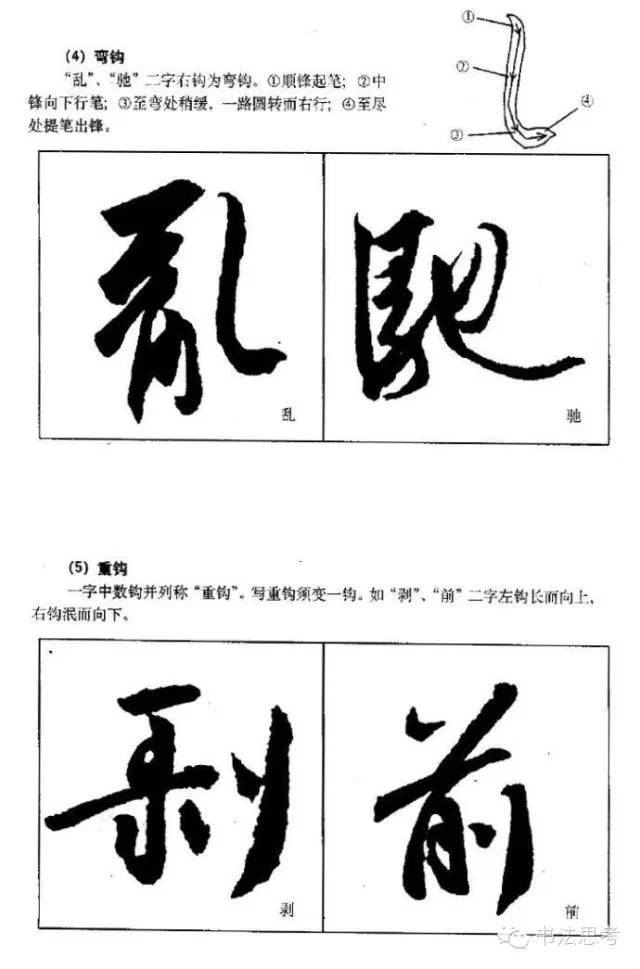 (4) 弯钩
“乱”、“驰”二字右钩为弯钩。①顺锋起笔；②中
锋向下行笔；③至弯处稍缓，一路圆转而右行；④至尽
处提笔出锋。
①
②
③
④
亂
馳
乱
驰
(5) 重钩
一字中数钩并列称“重钩”。写重钩须变一钩。如“剥”、“前”二字左钩长而向上，
右钩泯而向下。
剥
前
剥
前
书法思考